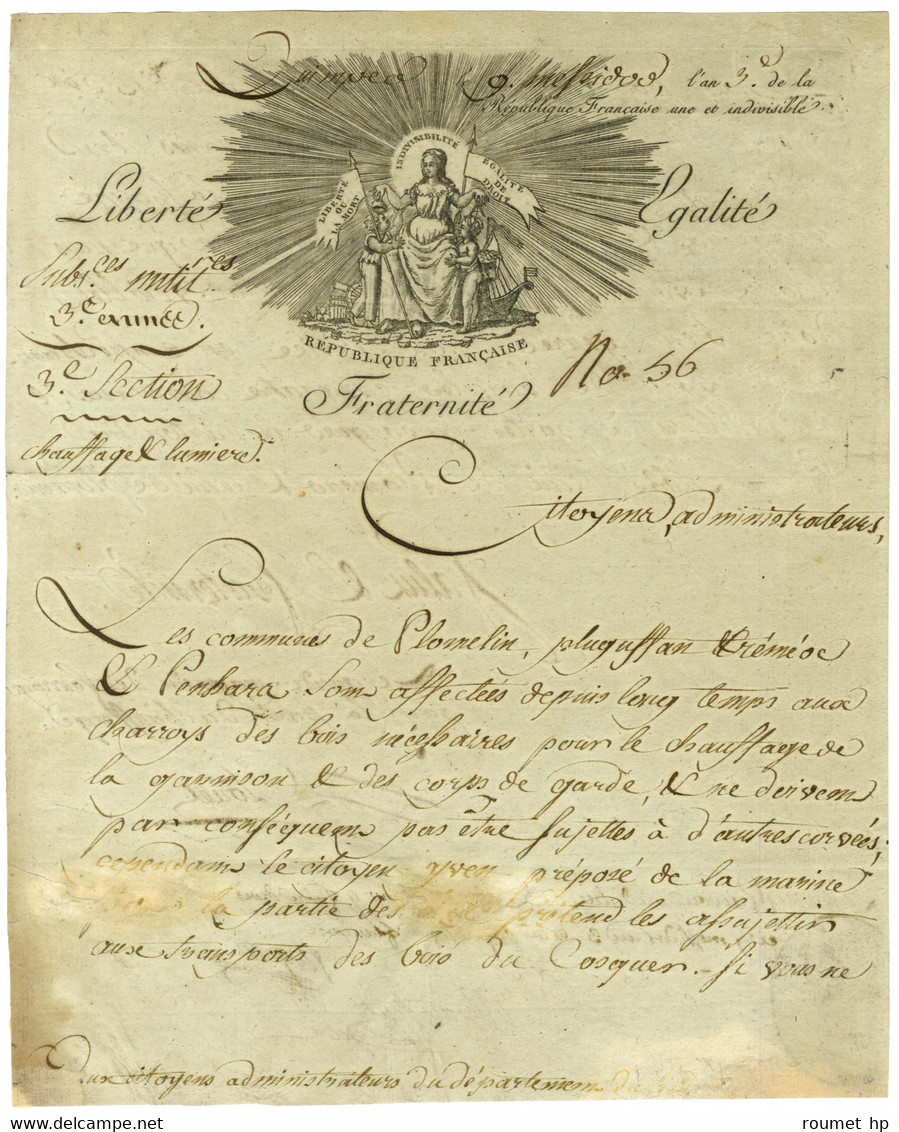 Quimper le 9. messidor, l'an 3e de la
République Française une et indivisible.
INDIVISIBILITÉ
LIBERTÉ
OU
LA MORT
EGALITÉ
DE
DROIT
Liberté
Egalité
Subs.ces milit.res
3.e année.
RÉPUBLIQUE FRANÇAISE
No. 56
3.e Section
Fraternité
chauffage & lumiere.
Citoyens administrateurs,
Les communes de Plomelin, pluguffan tréméoc
& Penhars sont affectées depuis long temps aux
charroys des bois nécessaires pour le chauffage de
la garnison & des corps de garde, & ne doivent
par conséquent pas être sujettes à d'autres corvées;
cependant le citoyen yven préposé de la marine
la partie des prétend les assujettir
aux transports des bois du Cosquer. Si vous ne
Aux citoyens administrateurs du département du
roumet hp